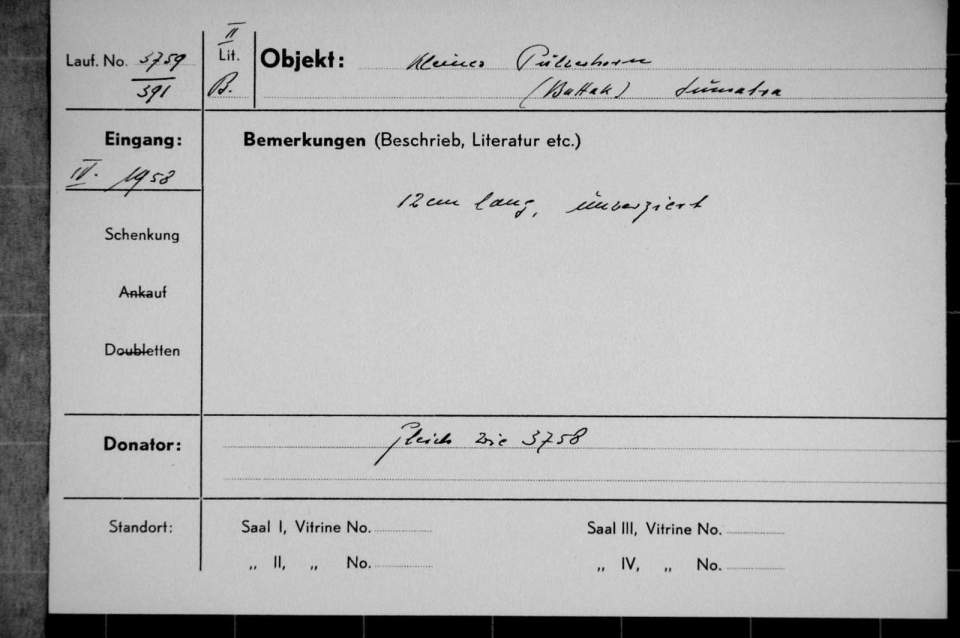 Lauf. No. 3759
391
II
Lit.
B.
Objekt: Kleines Pulverhorn
(Battak) Sumatra
Eingang:
IV. 1958
Schenkung
Ankauf
Doubletten
Bemerkungen (Beschrieb, Literatur etc.)
12 cm lang, unverziert
Donator: Gleich wie 3758
Standort:
Saal I, Vitrine No.
„ II, „ No.
Saal III, Vitrine No.
„ IV, „ No.